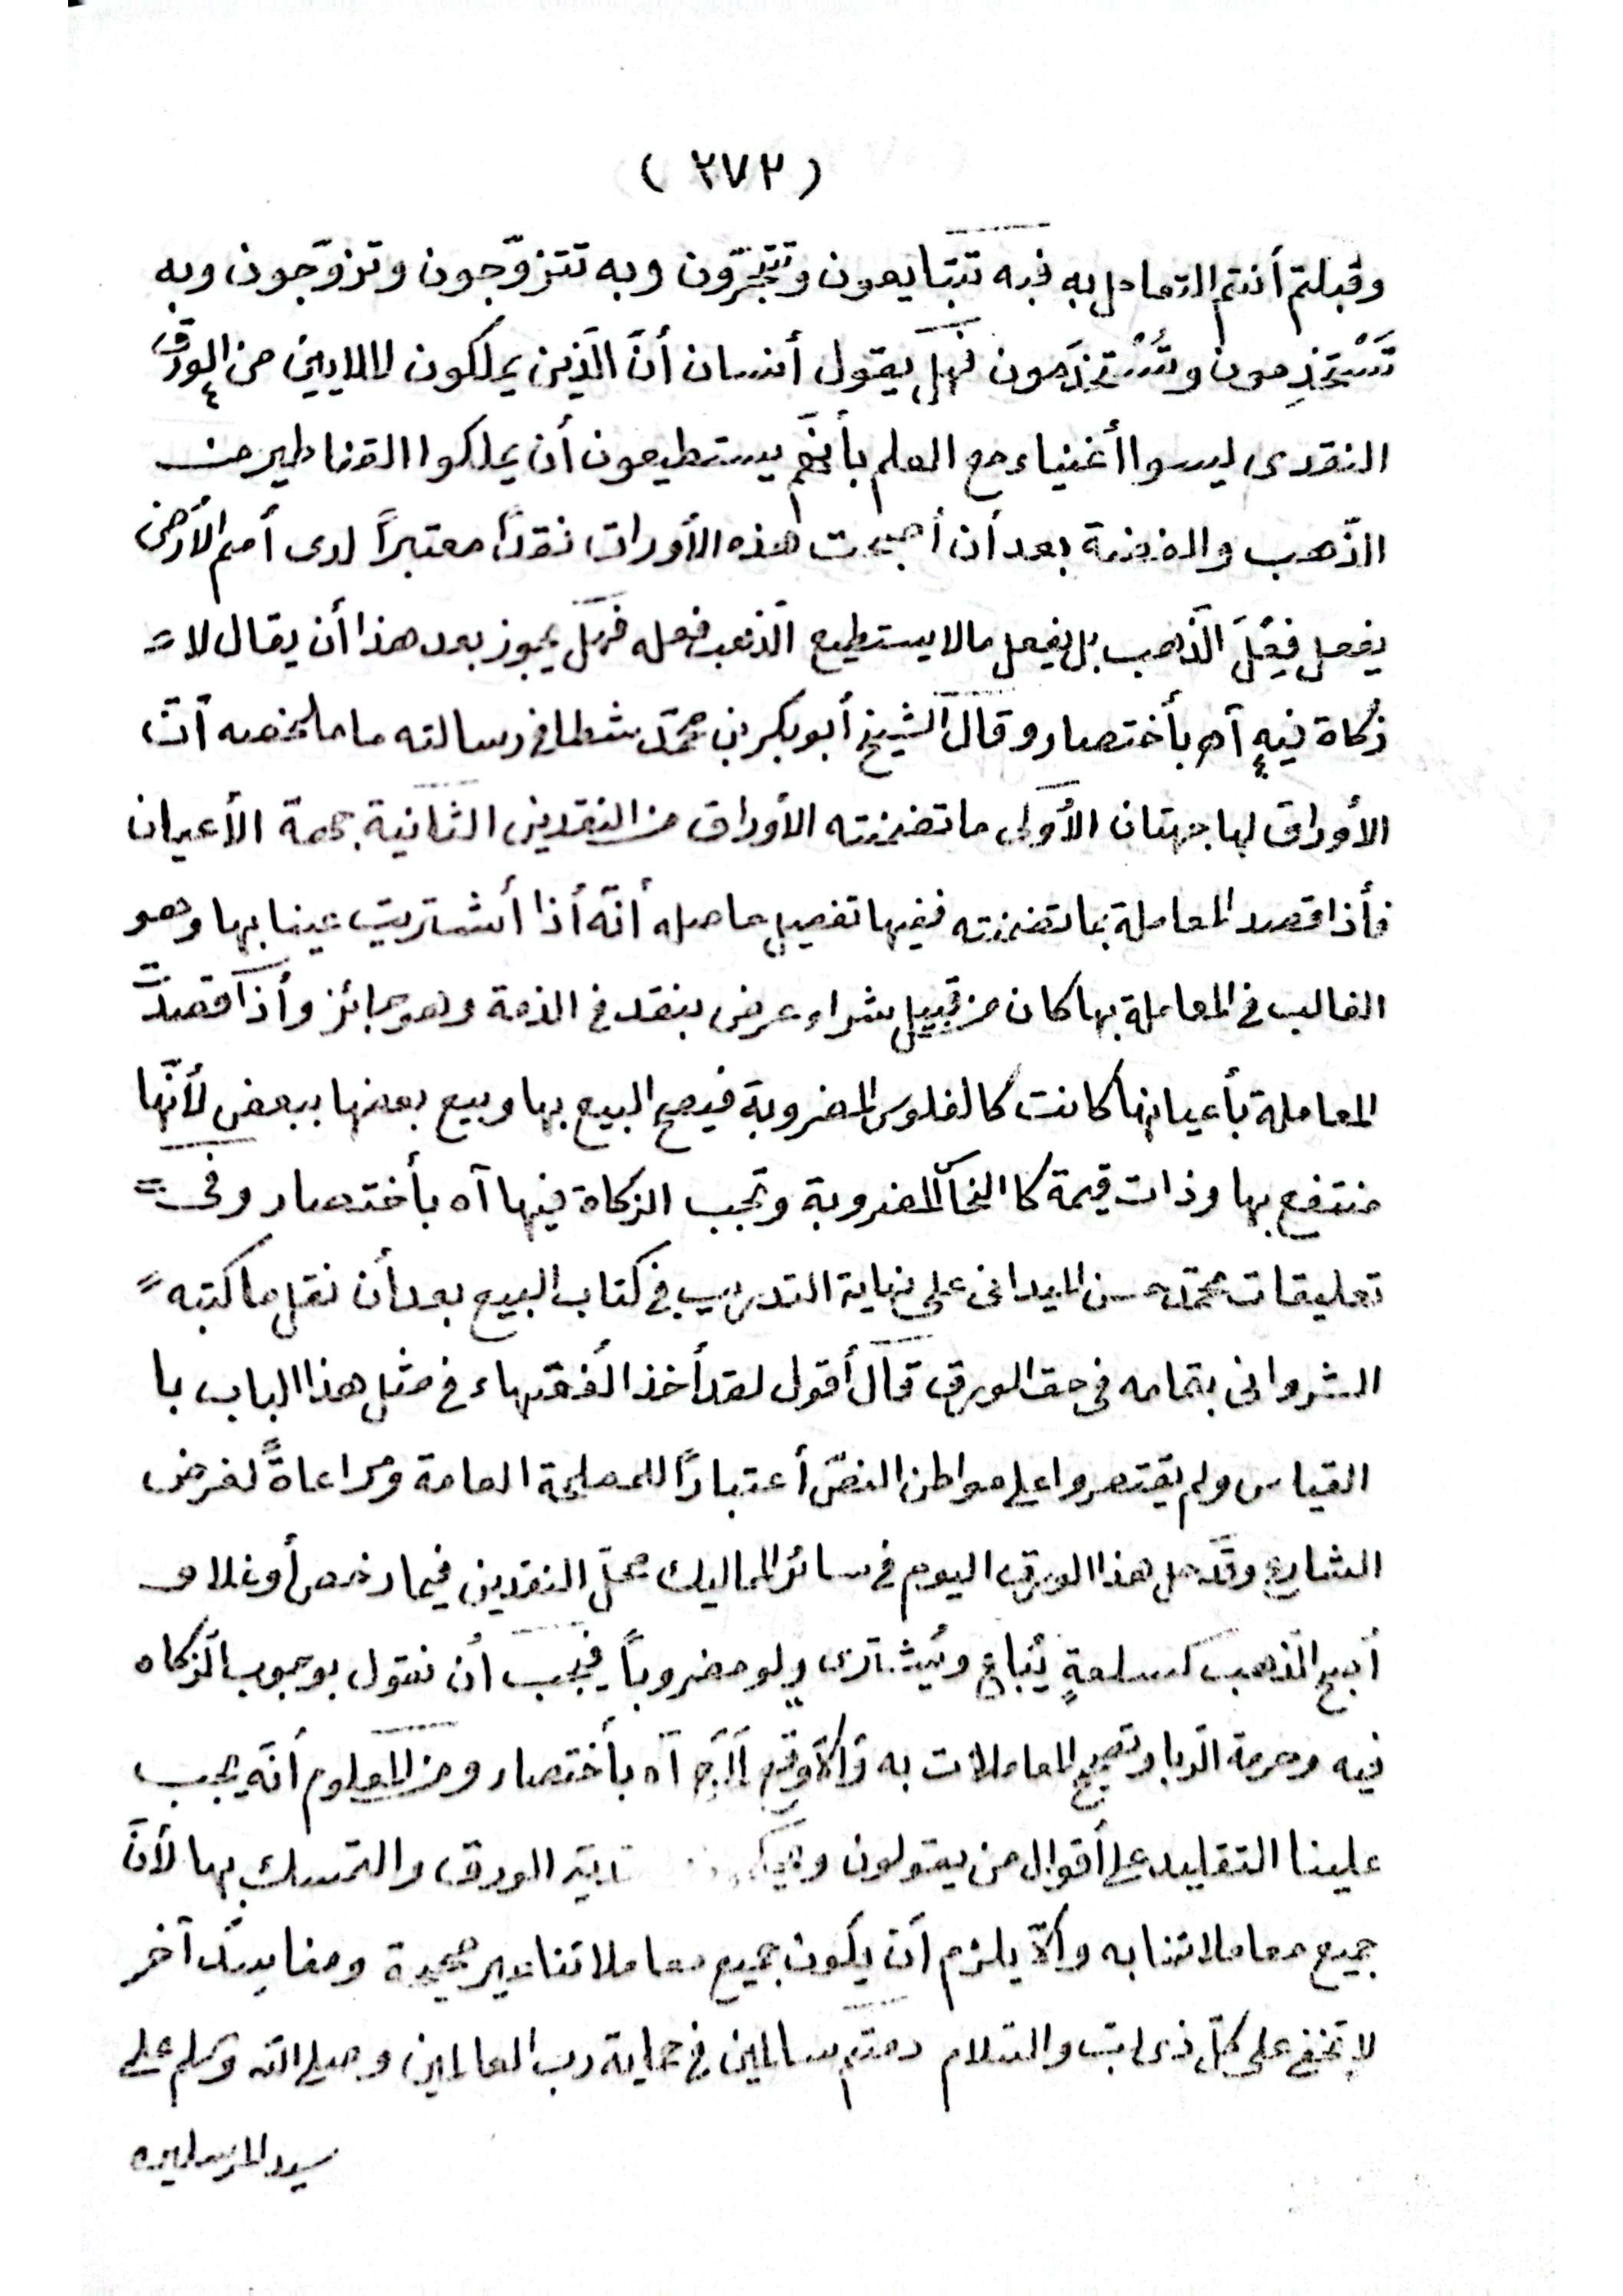 ( ٢٧٢ )
وقبلتم أنتم التعامل به فبه تتبايعون وتتجرّون وبه تتزوّجون وتزوّجون وبه
تَسْتَخْدِمون وتُسْتَخْدَمون فهل يقول أنسان أنَّ الّذين يملكون الملايين من الورق
النقدى ليسوا أغنياء مع العلم بأنّهم يستطيعون أن يملكوا القناطير من
الذّهب والفضة بعد أن أصبحت هذه الأوراق نقدًا معتبرًا لدى أمم الأرض
يفعل فِعْلَ الذّهب بل يفعل مالا يستطيع الذّهب فعله فهل يجوز بعد هذا أن يقال لا =
زكاة فيه آه بأختصار وقال الشيخ أبو بكر بن محمّد شطا فى رسالته ما ملخصه أنّ
الأوراق لها جهتان الأولى ما تضمنته الأوراق من النقدين الثانية جهة الأعيان
فأذا قصد المعاملة بما تضمنته ففيها تفصيل حاصله أنّه أذا أشتريت عينا بها وهو
الغالب فى المعاملة بها كان من قبيل شراء عرض بنقد فى الذمة وهو جائز وأذا قصدتّ
المعاملة بأعيانها كانت كالفلوس المضروبة فيصح البيع بها وبيع بعضها ببعض لأنّها
منتفع بها وذات قيمة كا النحاس المضروبة وتجب الزكاة فيها آه بأختصار وفى =
تعليقات محمّد حسن الميدانى على نهاية التدريب فى كتاب البيع بعد أن نقل ما كتبه =
الشروانى بتمامه فى حق الورق قال أقول لقد أخذ الفقهاء فى مثل هذا الباب با
القياس ولم يقتصروا على مواطن النصّ أعتبارًا للمصلحة العامة ومراعاةً لغرض
الشارع وقد حل هذا الورق اليوم فى سائر المماليك محلّ النقدين فيما رخص أو غلا و
أصبح الذهب كسلعةٍ يُباع ويُشترى ولو مضروباً فيجب أن نقول بوجوب الزكاه
فيه وحرمة الرّبا وتصحيح المعاملات به آه بأختصار ومن المعلوم أنّه يجب
علينا التقليد على أقوال من يقولون الورق والتمسك بها لأنّ
جميع معاملاتنا به وألّا يلزم أن يكون جميع معاملاتنا غير صحيحة ومفاسد آخر
لا تخفى على كلّ ذى لبّ والسّلام دمتم سالمين فى حماية رب العالمين وصلى الله وسلم على
سيد المرسلين